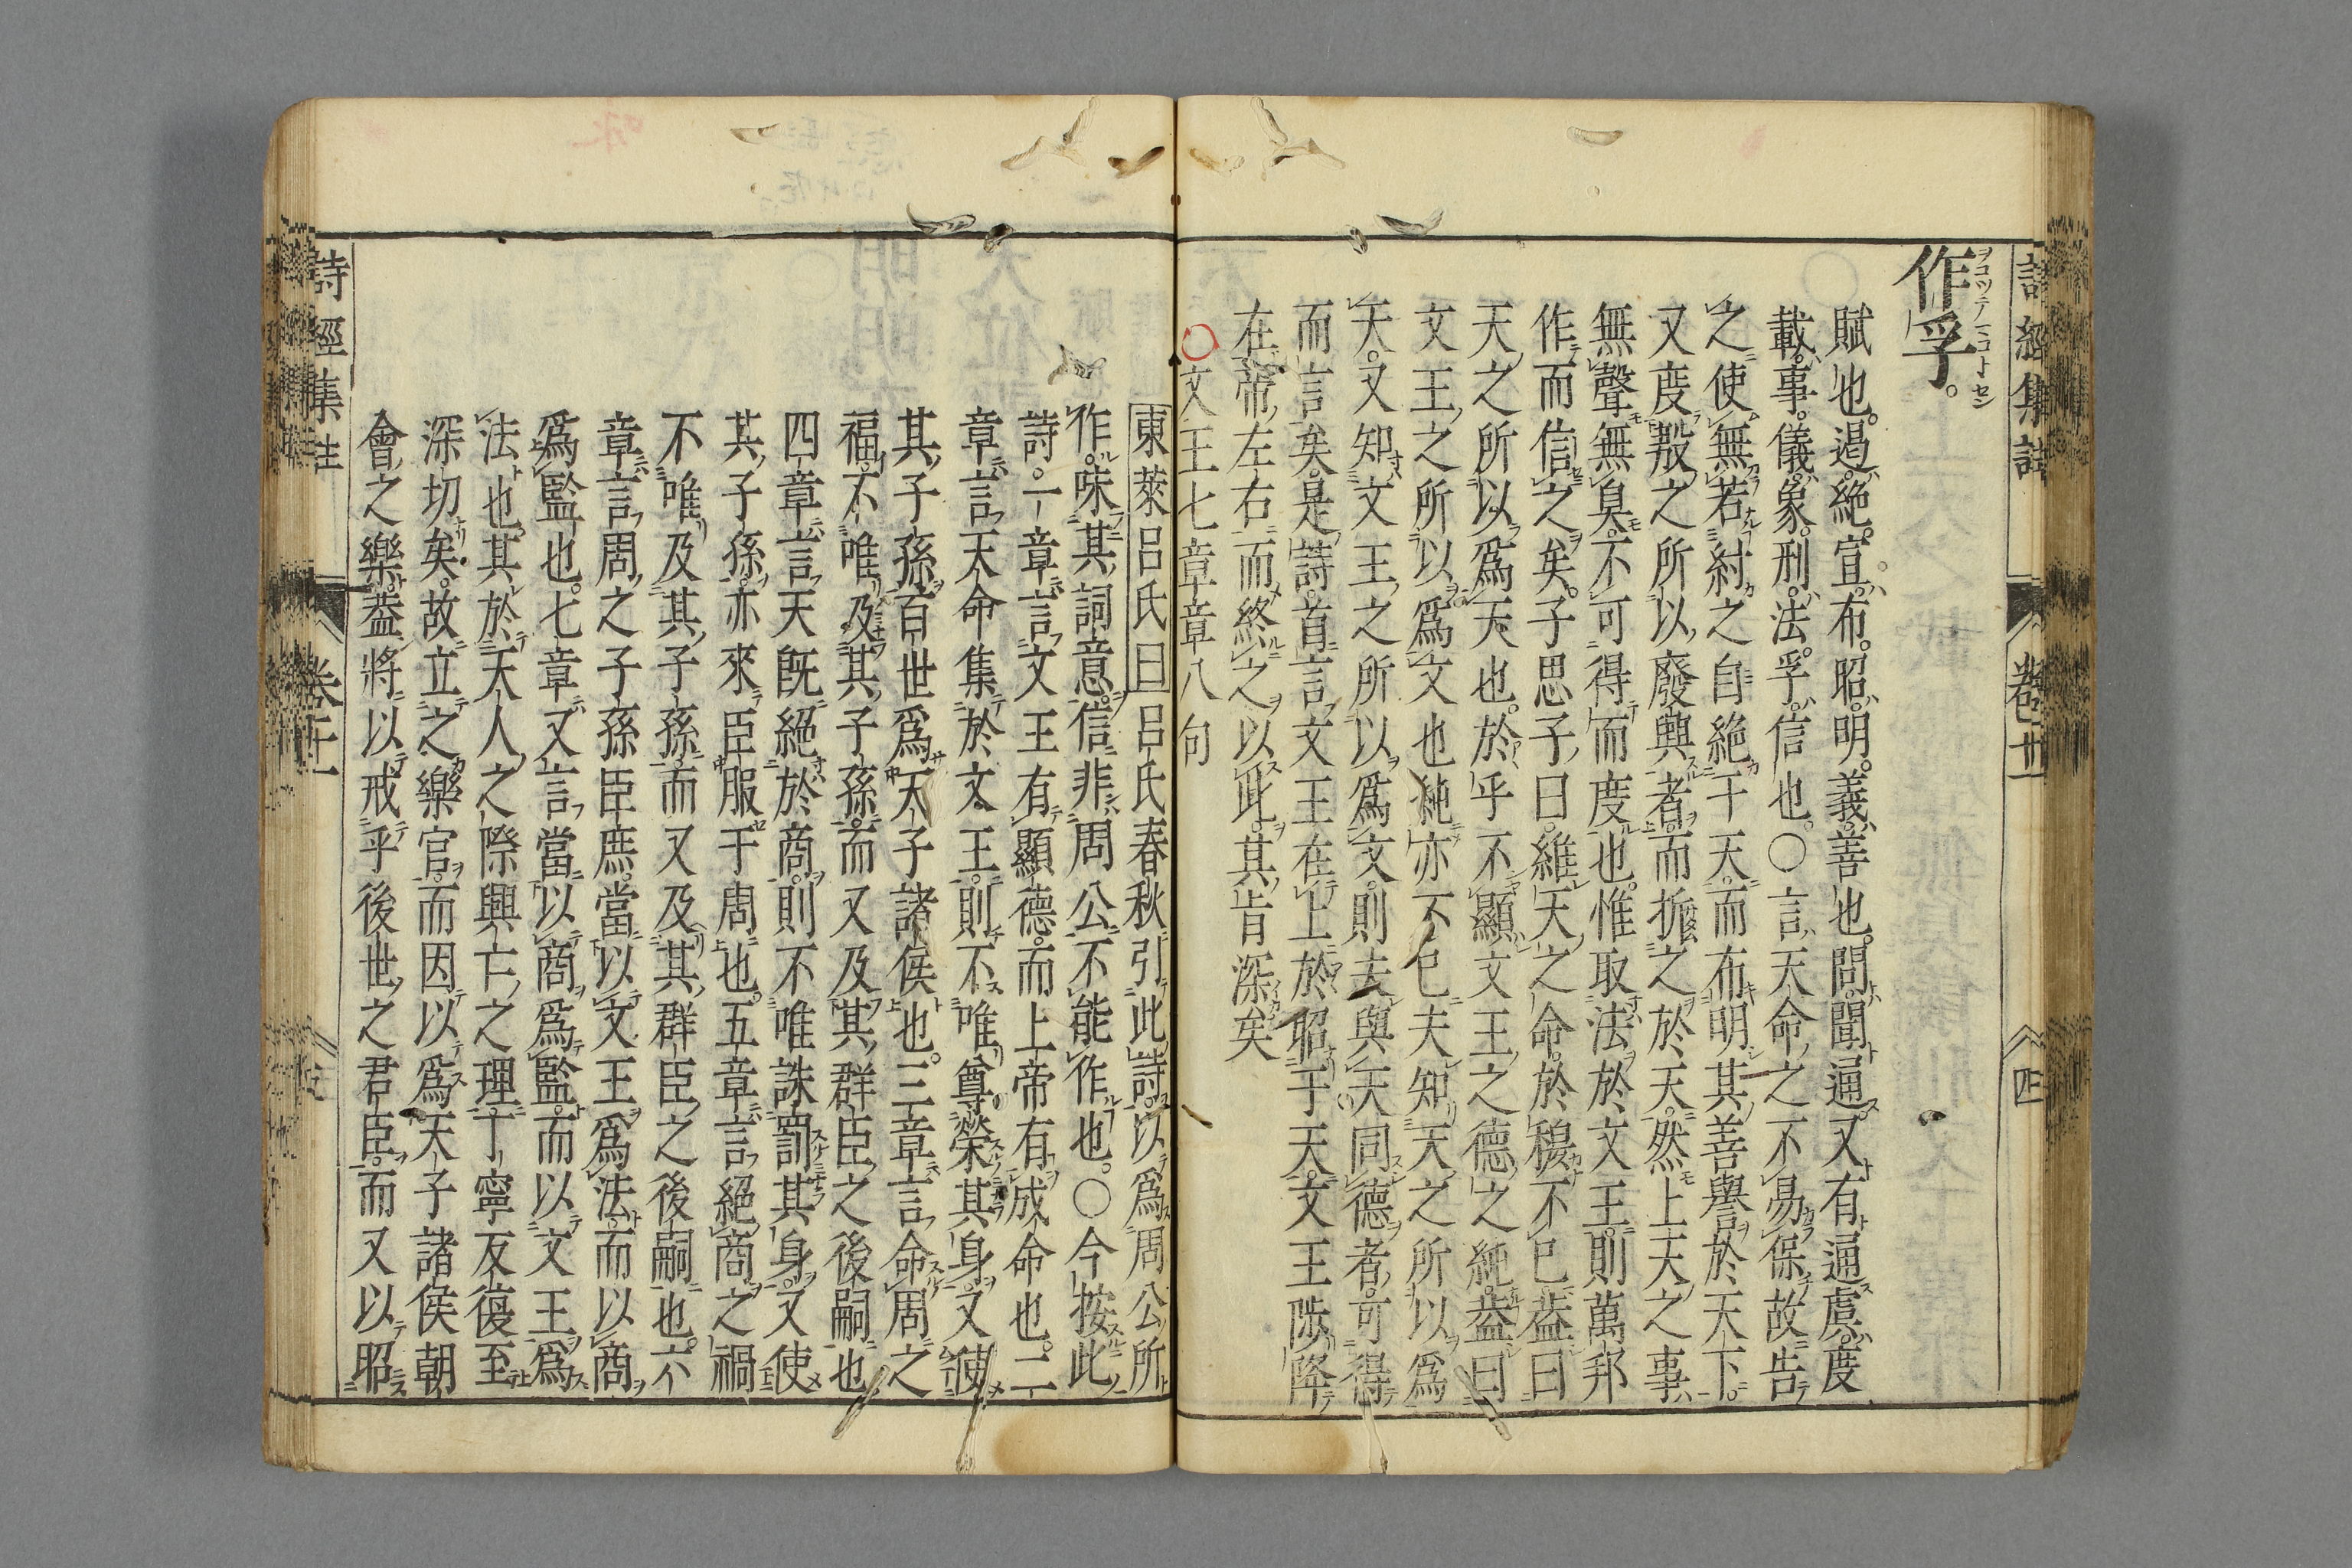 詩經集註
卷十一
四
作孚。
賦也。遏。絶。宣。布。昭。明。義。善也。問。聞通。又有通。虞。度
載。事。儀。象。刑。法。孚。信也。○言天命之不易保。故告
之使無若紂之自絶于天。而布明其善譽於天下。
又度殷之所以廢興者。而折之於天。然上天之事
無聲無臭。不可得而度也。惟取法於文王。則萬邦
作而信之矣。子思子曰。維天之命。於穆不已。蓋曰
天之所以爲天也。於乎不顯文王之德之純。蓋曰
文王之所以爲文也純亦不已夫知天之所以爲
天。又知文王之所以爲文。則夫與天同德者。可得
而言矣。是詩首言文王在上於昭于天。文王陟降
在帝左右而終之以此。其旨深矣
○文王七章章八句
東萊呂氏曰呂氏春秋引此詩。以爲周公所
作。味其詞意。信非周公不能作也。○今按此
詩。一章言文王有顯德。而上帝有成命也。二
章言天命集於文王。則不唯尊榮其身。又使
其子孫百世爲天子諸侯也。三章言命周之
福。不唯及其子孫。而又及其群臣之後嗣也
四章言天既絶於商。則不唯誅罰其身。又使
其子孫亦來臣服于周也。五章言絶商之禍
不唯及其子孫。而又及其群臣之後嗣也。六
章言周之子孫臣庶。當以文王爲法。而以商
爲監也。七章又言當以商爲監。而以文王爲
法也。其於天人之際興亡之理。丁寧反復至
深切矣。故立之樂官。而因以爲天子諸侯朝
會之樂。蓋將以戒乎後世之君臣。而又以昭
詩經集註
卷十一